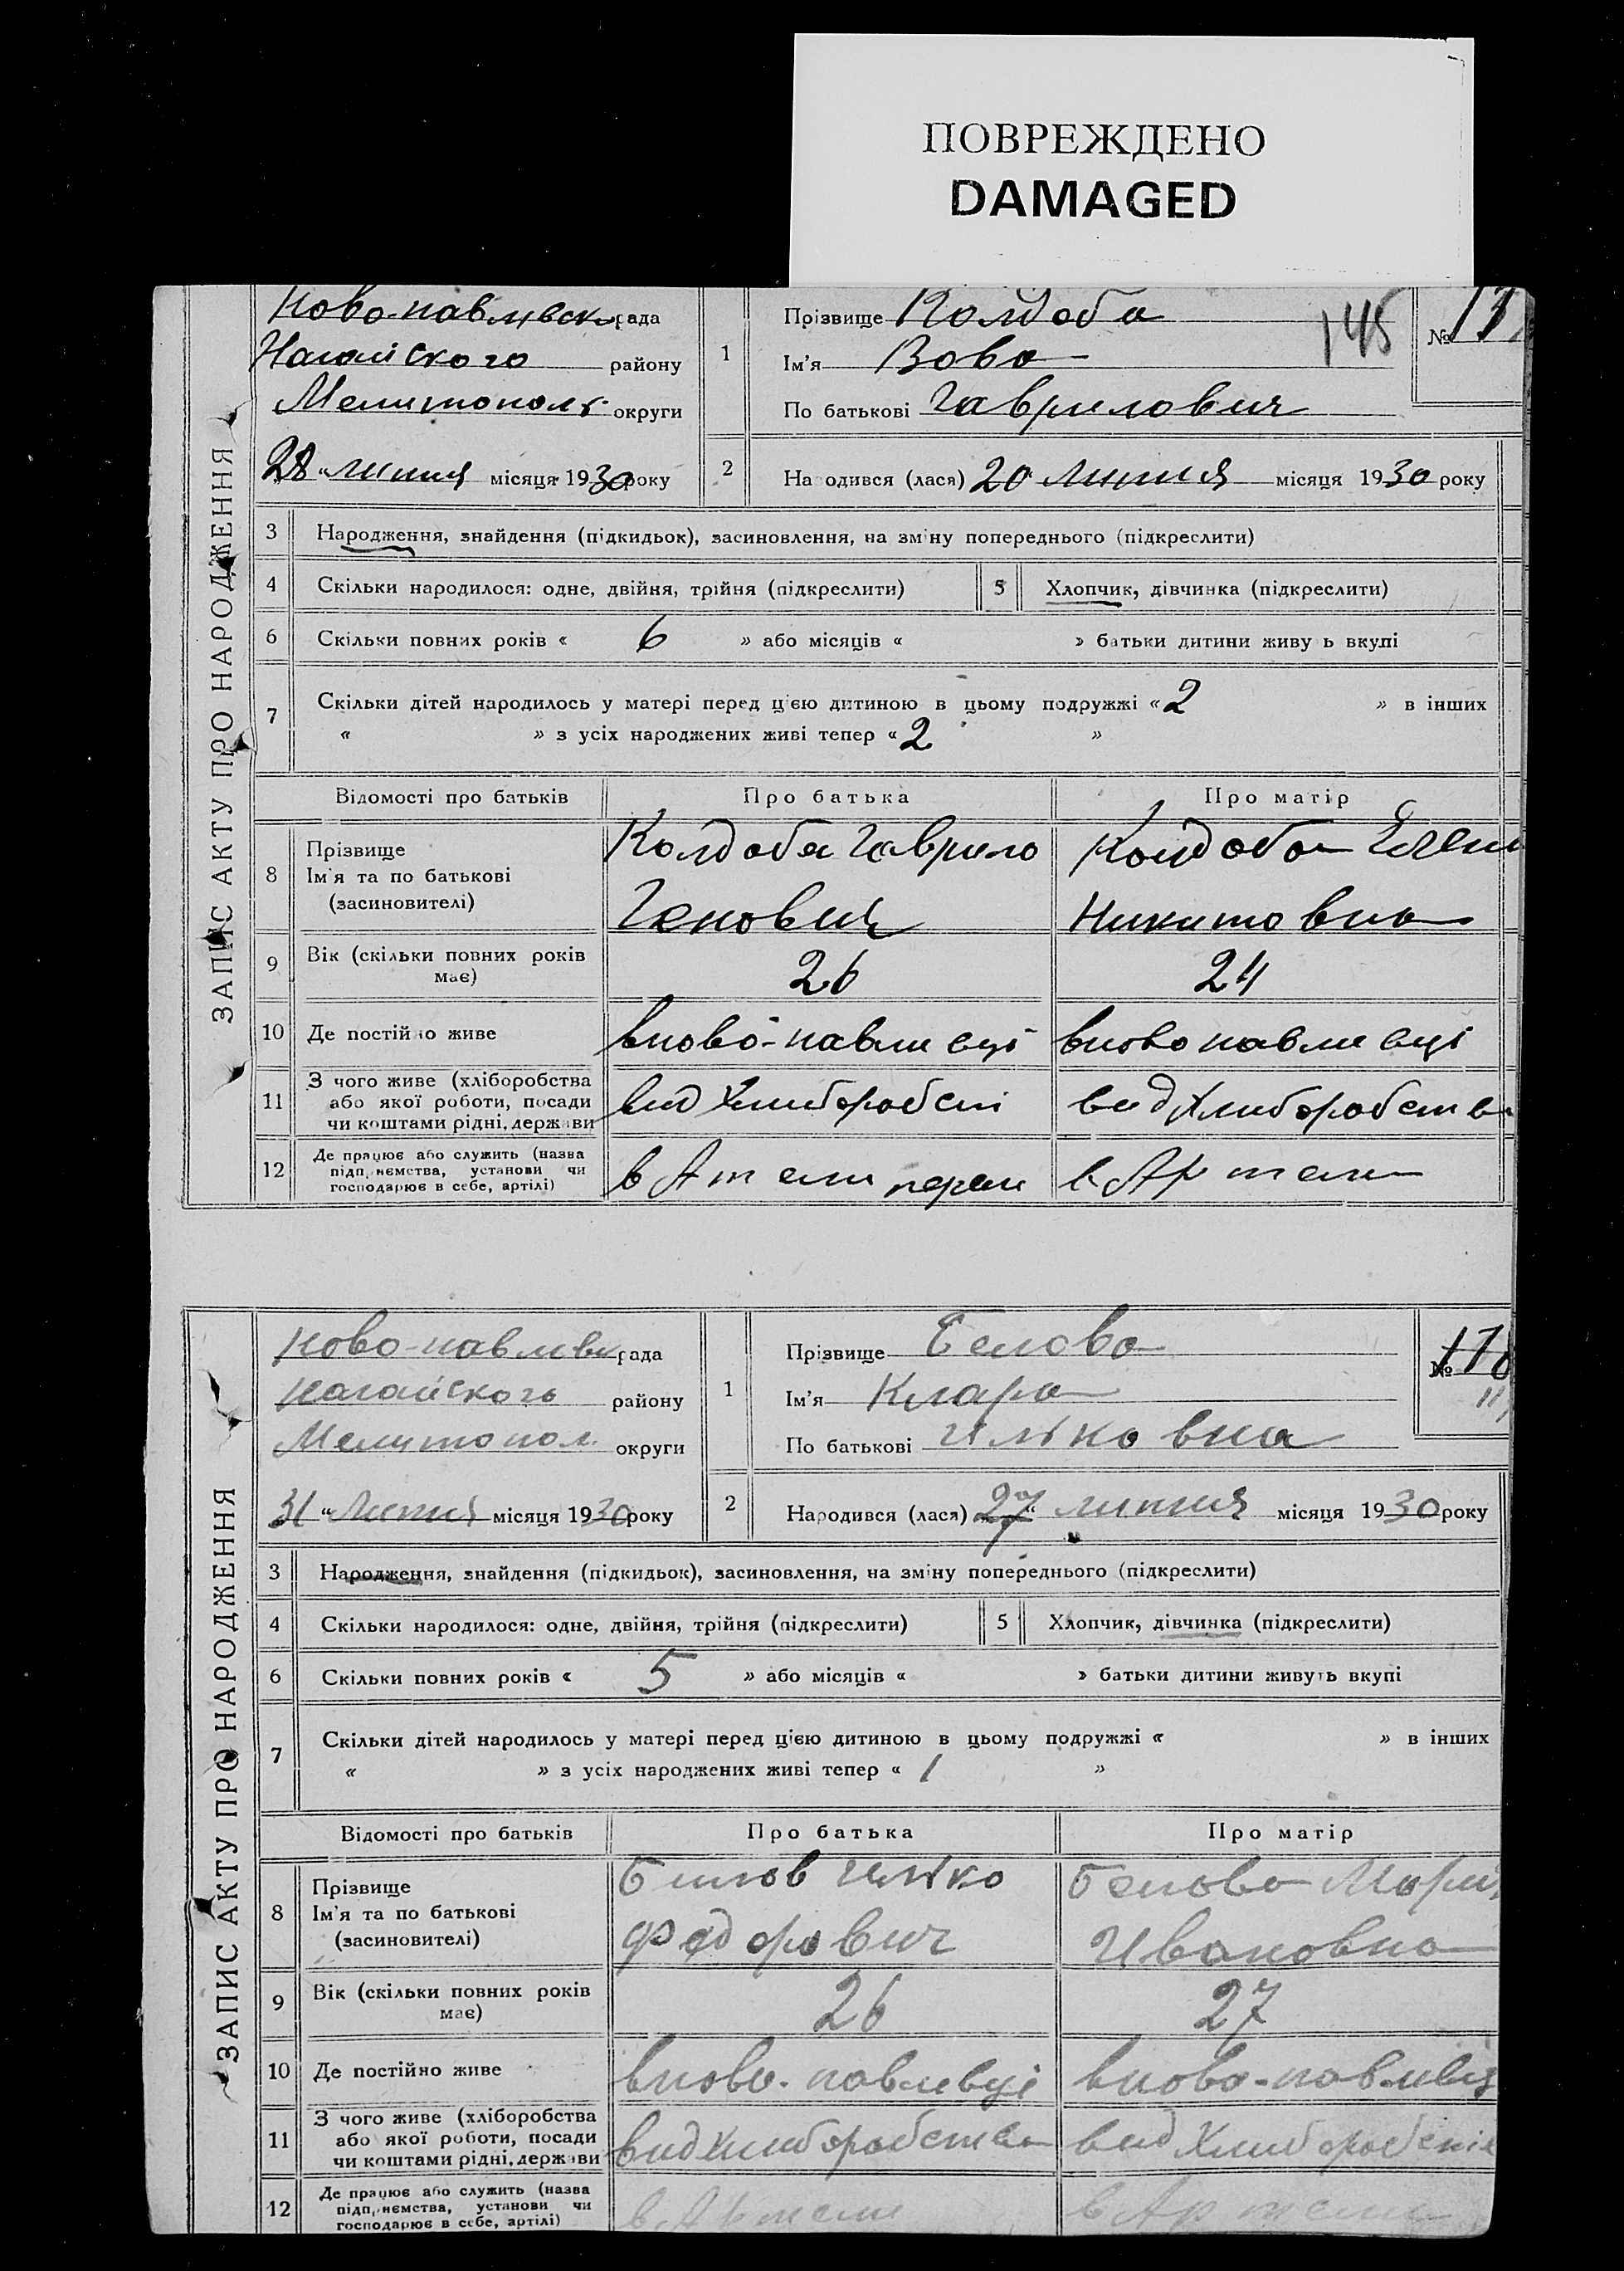 ПОВРЕЖДЕНО
DAMAGED
ЗАПИС АКТУ ПРО НАРОДЖЕННЯ
Ново-павлівск рада
Нагайського району
Мелитополь округи
28 " липня місяця 1930 року
1 Прізвище Колдоба
Ім'я Вова
По батькові Гаврилович
145
№
2 На одився (лася) 20 липня місяця 1930 року
3 Народження, знайдення (підкидьок), засиновлення, на зміну попереднього (підкреслити)
4 Скільки народилося: одне, двійня, трійня (підкреслити) 5 Хлопчик, дівчинка (підкреслити)
6 Скільки повних років « 6 » або місяців « » батьки дитини живу ь вкупі
7 Скільки дітей народилось у матері перед цією дитиною в цьому подружжі « 2 » в інших
« » з усіх народжених живі тепер « 2 »
Відомості про батьків Про батька Про матір
8 Прізвище
Ім'я та по батькові
(засиновителі)
Колдоба Гаврило
Колдоба
Никитовна
9 Вік (скільки повних років
має)
26 24
10 Де постійно живе вново-павливці вново павливці
11 З чого живе (хліборобства
або якої роботи, посади
чи коштами рідні, держави
вид вид
12 Де працює або служить (назва
підприємства, установи чи
господарює в себе, артілі)
в Артели
ЗАПИС АКТУ ПРО НАРОДЖЕННЯ
Ново-павливк рада
Нагайського району
Мелитопол округи
31 " Липня місяця 1930 року
1 Прізвище Белова
Ім'я Клара
По батькові Ильковна
№
2 Народився (лася) 27 липня місяця 1930 року
3 Народження, знайдення (підкидьок), засиновлення, на зміну попереднього (підкреслити)
4 Скільки народилося: одне, двійня, трійня (підкреслити) 5 Хлопчик, дівчинка (підкреслити)
6 Скільки повних років « 5 » або місяців « » батьки дитини живуть вкупі
7 Скільки дітей народилось у матері перед цією дитиною в цьому подружжі « » в інших
« » з усіх народжених живі тепер « 1 »
Відомості про батьків Про батька Про матір
8 Прізвище
Ім'я та по батькові
(засиновителі)
Билов Илько
Федорович
Белова Мари
Ивановна
9 Вік (скільки повних років
має)
26 27
10 Де постійно живе вново-павливці вново-павливц
11 З чого живе (хліборобства
або якої роботи, посади
чи коштами рідні, держави
вид хлиборобства вид
12 Де працює або служить (назва
підприємства, установи чи
господарює в себе, артілі)
в Артели в Артели